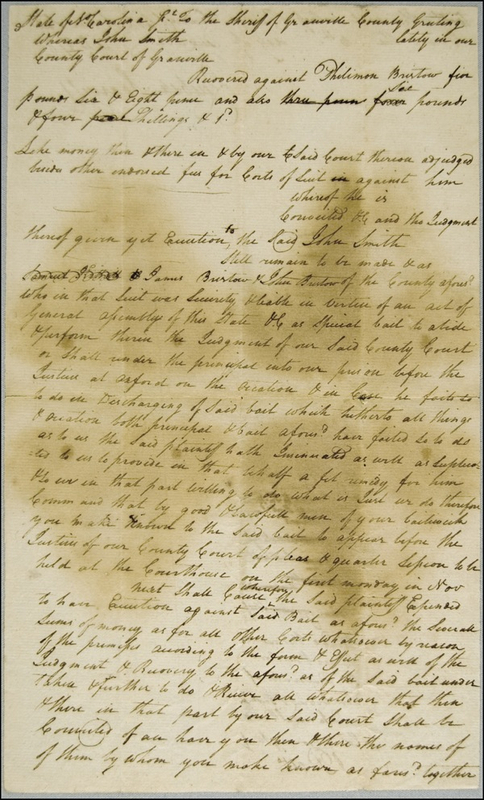 State of N Carolina Sc To the Sheriff of Granville County Greeting
Whereas John Smith lately in our
County Court of Granville
Recovered against Philimon Bristow five
pounds Six & Eight pence and also Six pounds
& four Shillings &
Like money then & there in & by our Said Court thereon adjudged
besides other endorsed fees for Costs of Suit against him
whereof he is
Convicted &C and tho Judgment
thereof given yet Execution to the Said John Smith
Still remain to be made & as
James Bristow & John Bristow of the County afores.d
who in that Suit was Security & liable in virtue of an act of
General assembly of this State &C as Special bail to abide
& perform therein the Judgment of our Said County Court
or Shall render the principal into our prison before the
Justices at on the & in Case he failes to
do in Discharging of Said bail which hitherto all things
& both principal & Bail afores.d have failed So to do
as to us the said plaintif hath Insinuated as well as Suplica
ted to us to provide in that behalf a fit remedy for him
& we in that part willing to do what is Just we do therefore
Command that by good & Lawfull men of your bailiwick
you make known to the Said bail to appear before the
Justices of our County Court of pleas & quarter Session to be
held at the Courthouse on the first monday in Nov
next Shall Cause wherefore the Said plaintif
to have Execution against Said Bail as afores.d the Severale
Sums of money as for all other Costs whatsoever by reason
of the premises according to the form & Effect as well of the
Judgment & Recovery to the afores.d as of the Said bail under
taken & further to do & Receive all whatsoever that then
& there in that part by our Said Court Shall be
Considered of an have you then & there the names of
of them by whom you make known as fores.d together